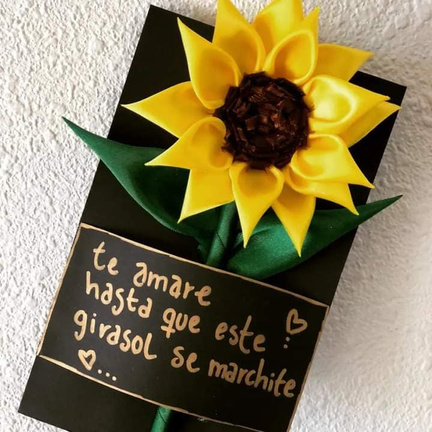 te amare
hasta que este
girasol se marchite
...